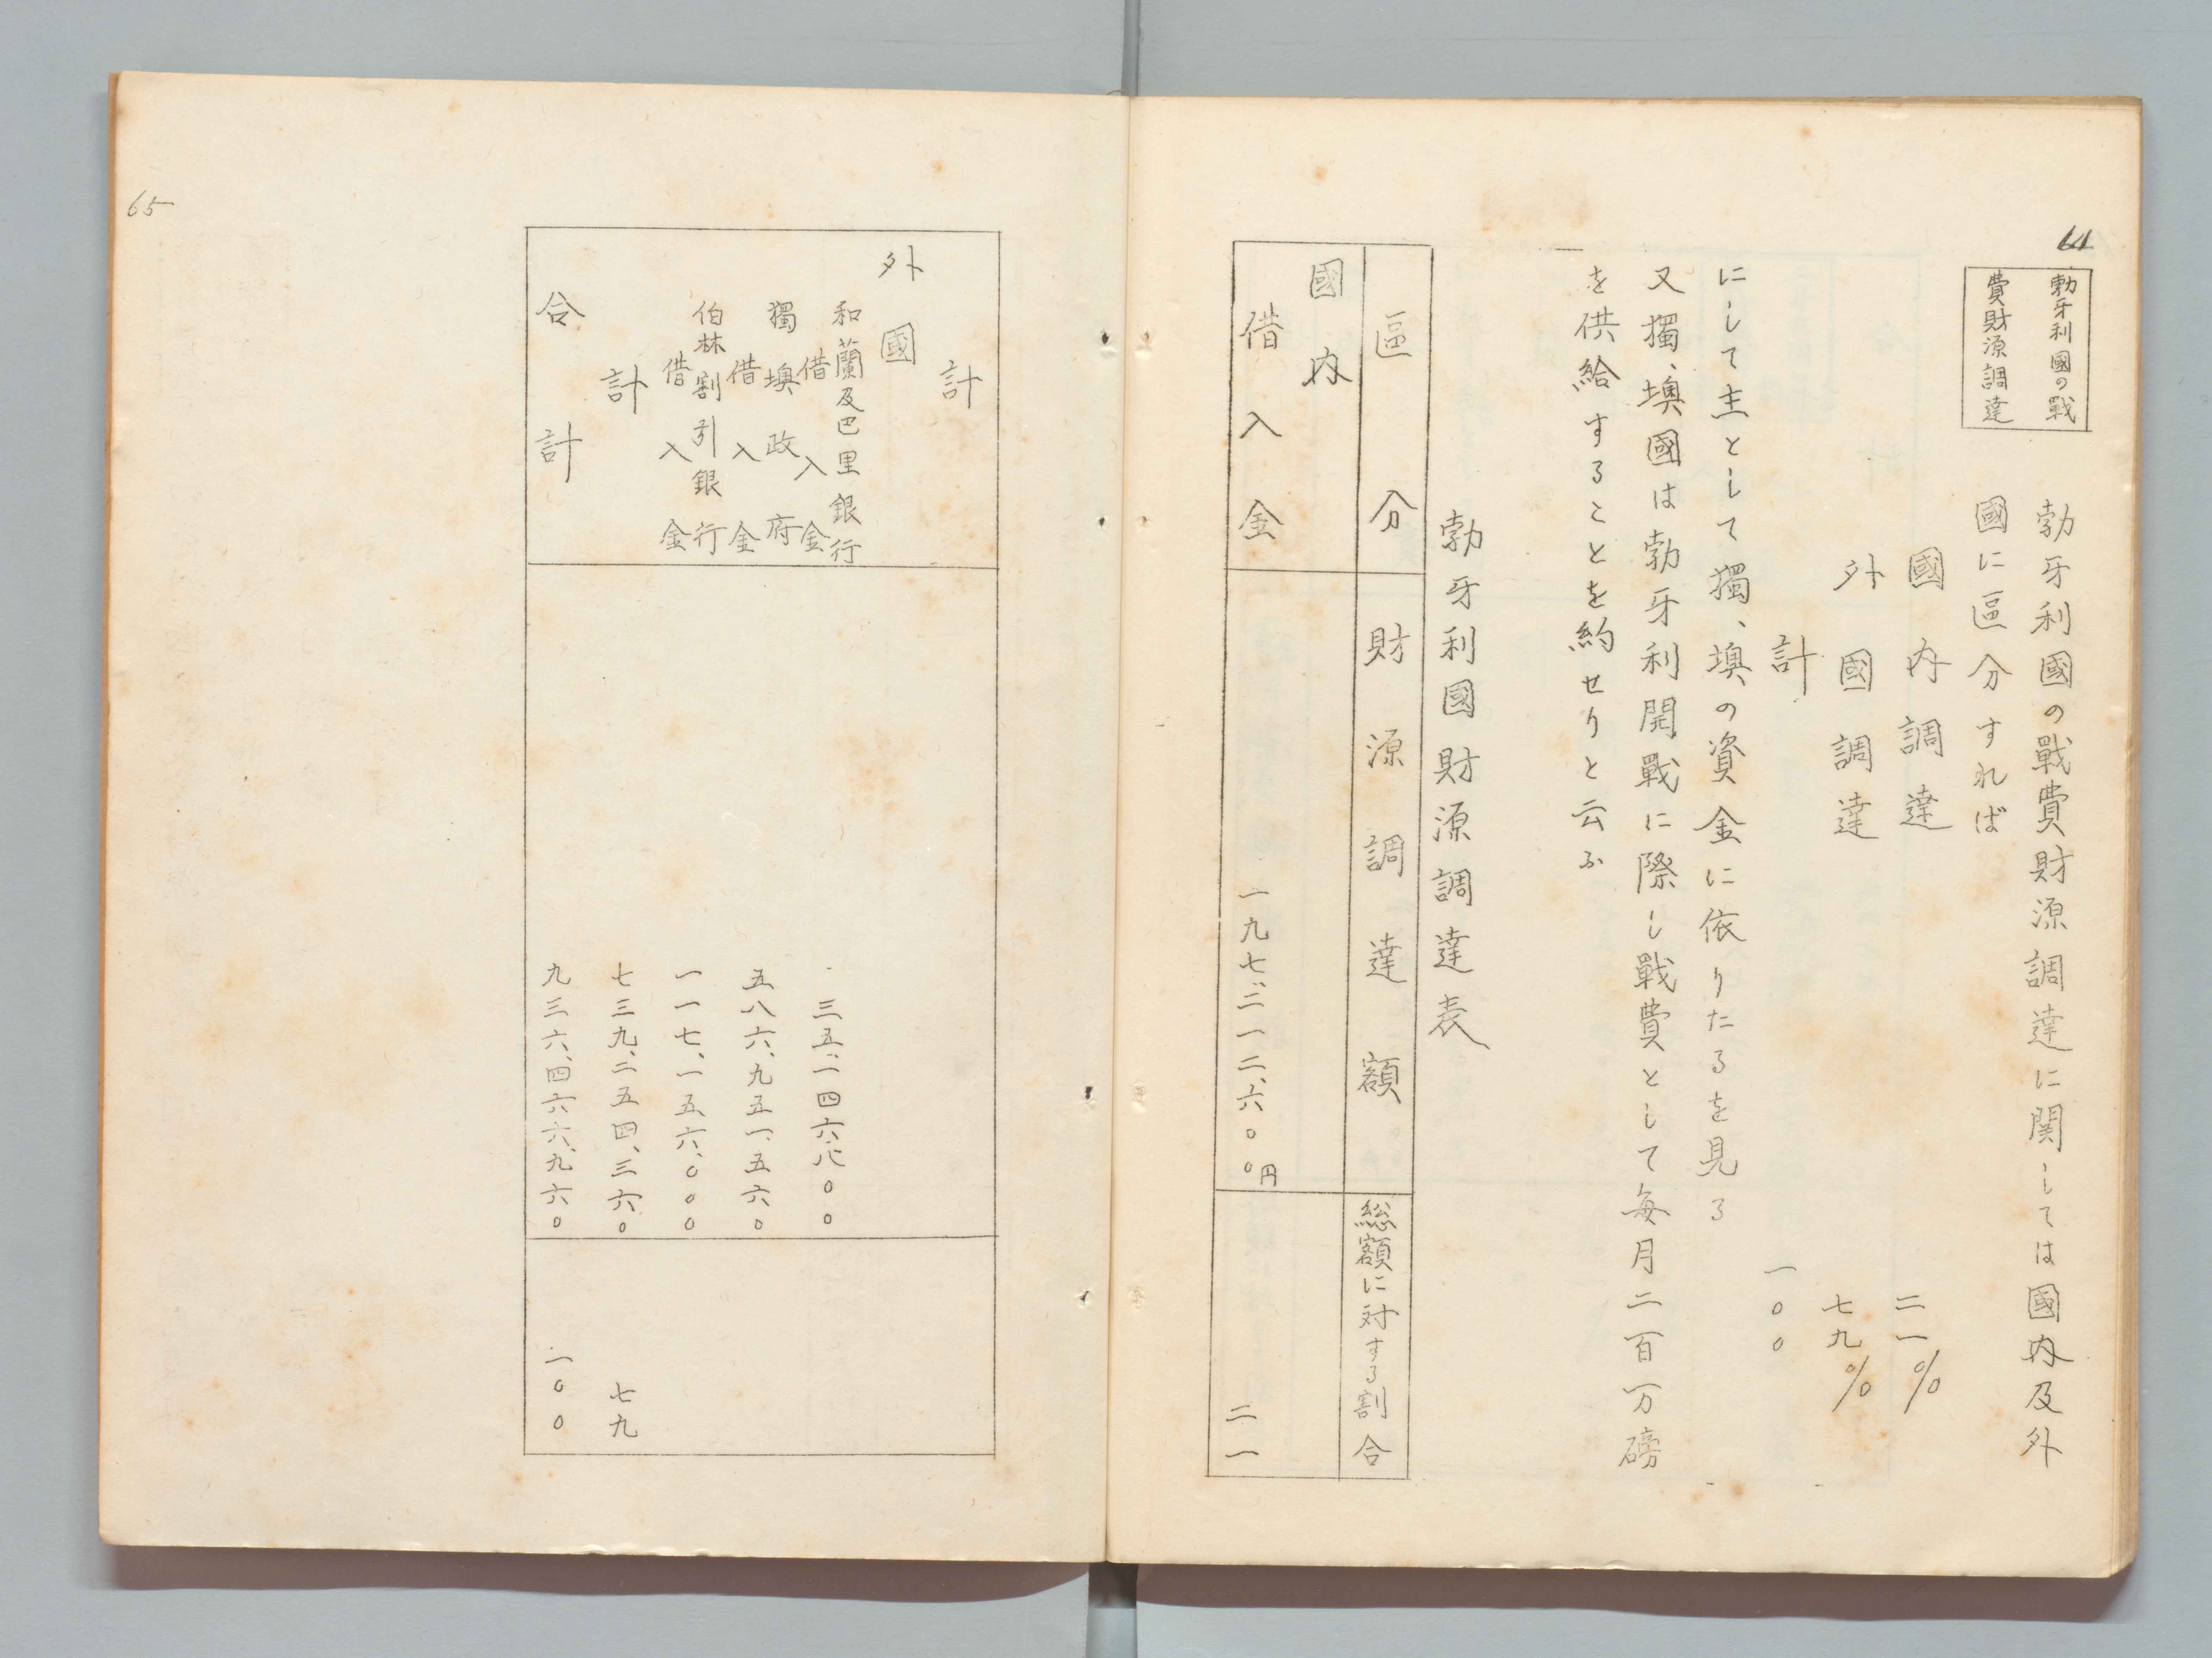 64
勃牙利國の戰
費財源調達
勃牙利國の戰費財源調達に関しては國内及外
國に區分すれば
國内調達 二一%
外國調達 七九%
計 一〇〇
にして主として獨、墺の資金に依りたるを見る
又獨、墺國は勃牙利開戰に際し戰費として毎月二百万磅
を供給することを約せりと云ふ
勃牙利國財源調達表
區分 財源調達額 総額に対する割合
國内
借入金 一九七、二一二、六〇〇円 二一
計
外國
和蘭及巴里銀行
借入金 三五、一四六、八〇〇
獨墺政府
借入金 五八六、九五一、五六〇
伯林割引銀行
借入金 一一七、一五六、〇〇〇
計 七三九、二五四、三六〇 七九
合計 九三六、四六六、九六〇 一〇〇
65